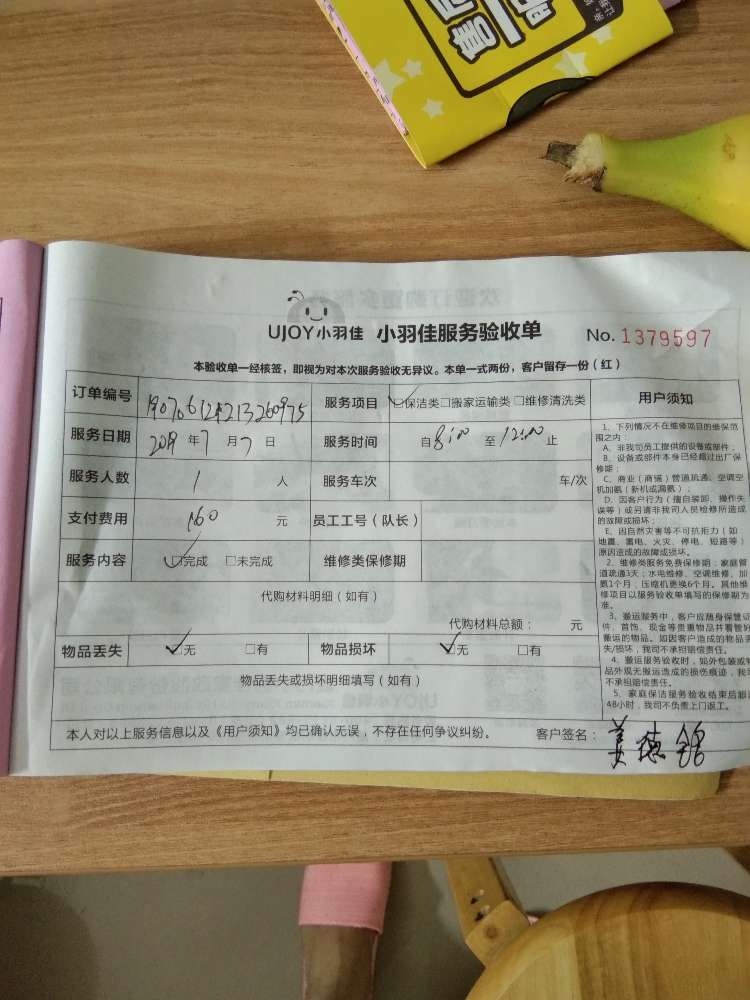 UJOY小羽佳 小羽佳服务验收单 No. 1379597
本验收单一经核签，即视为对本次服务验收无异议。本单一式两份，客户留存一份（红）
订单编号 服务项目 ☑保洁类□搬家运输类□维修清洗类
服务日期 2019 年 7 月 7 日 服务时间 自 8:00 至 12:00 止
服务人数 1 人 服务车次 车/次
支付费用 160 元 员工工号（队长）
服务内容 ☑完成 □未完成 维修类保修期
代购材料明细（如有）
代购材料总额： 元
物品丢失 ☑无 □有 物品损坏 ☑无 □有
物品丢失或损坏明细填写（如有）
本人对以上服务信息以及《用户须知》均已确认无误，不存在任何争议纠纷。 客户签名： 姜德
用户须知
1、下列情况不在维修项目的维保范
围之内：
A、非我司员工提供的设备或部件；
B、设备或部件本身已经超过出厂保
修期；
C、商业（商铺）管道疏通、空调空
机加氨（新机或漏氨）；
D、因客户行为（擅自装卸、操作失
误等）或另请非我司人员检修所造成
的故障或损坏；
E、因自然灾害等不可抗拒力（如
地震、雷电、火灾、停电、短路等）
原因造成的故障或损坏。
2、维修类服务免费保修期：家庭管
道疏通3天；水电维修、空调维修、加
氨1个月；压缩机更换6个月。其他维
修项目以服务验收单填写的保修期为
准。
3、搬运服务中，客户应随身保管证
件、首饰、现金等贵重物品并看管好
搬运的物品。如因客户造成的物品丢
失/损坏，我司不承担赔偿责任。
4、搬运服务验收时，如外包装或物
品外观无搬运造成的损伤痕迹，我司
不承担赔偿责任。
5、家庭保洁服务验收结束后超过
48小时，我司不负责上门返工。